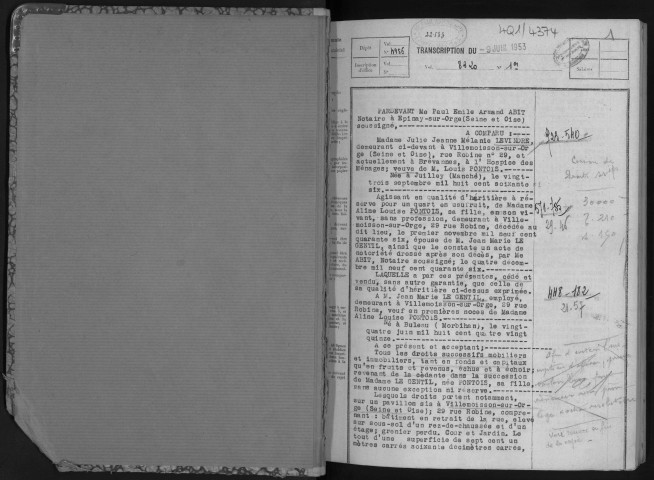 4Q1/4374
1
Dépôt
Vol.
N°
TRANSCRIPTION DU
1953
Vol.
PARDEVANT Me Paul Emile Armand ABIT
Notaire à Epinay-sur-Orge(Seine et Oise)
soussigné,
A COMPARU :
Madame Julie Jeanne Mélanie
demeurant ci-devant à Villemoisson-sur-Or
ge (Seine et Oise), rue Robine n° 29, et
actuellement à Brévannes, à l' Hospice des
Ménages; veuve de M. Louis PONTOIS.
Née à Juilley (Manche), le vingt-
trois septembre mil huit cent soixante
six.
Agissant en qualité d'héritière à ré-
serve pour un quart en usufruit, de Madame
Aline Louise PONTOIS, sa fille, en son vi-
vant, sans profession, demeurant à Ville-
moisson-sur-Orge, 29 rue Robine, décédée au
dit lieu, le premier novembre mil neuf cent
quarante six, épouse de M. Jean Marie LE
GENTIL, ainsi que le constate un acte de
notoriété dressé après son décès, par Me
ABIT, Notaire soussigné; le quatre décem-
bre mil neuf cent quarante six.
LAQUELLE a par ces présentes, cédé et
vendu, sans autre garantie, que celle de
sa qualité d'héritière ci-dessus exprimée.
A M. Jean Marie LE GENTIL, employé,
demeurant à Villemoisson-sur-Orge, 29 rue
Robine, veuf en premières noces de Madame
Aline Louise PONTOIS.
Né à Buleau (Morbihan), le vingt-
quatre juin mil huit cent quatre vingt
quinze.
A ce présent et acceptant;
Tous les droits successifs mobiliers
et immobiliers, tant en fonds et capitaux
qu'en fruits et revenus, échus et à échoir,
revenant de la cédante dans la succession
de Madame LE GENTIL, née PONTOIS, sa fille,
sans aucune exception ni réserve.
Lesquels droits portent notamment,
sur un pavillon sis à Villemoisson-sur-Or-
ge (Seine et Oise); 29 rue Robine, compre-
nant : bâtiment en retrait de la rue, élevé
sur sous-sol d'un rez-de-chaussée et d'un
étage; grenier perdu. Cour et Jardin. Le
tout d'une superficie de sept cent un
mètres carrés soixante decimètres carrés,
30000